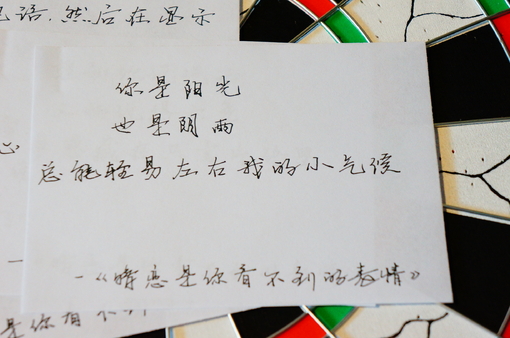 话，然后在显示
你是阳光
也是阴雨
总能轻易左右我的小气候
—《暗恋是你看不到的表情》
是你看不到